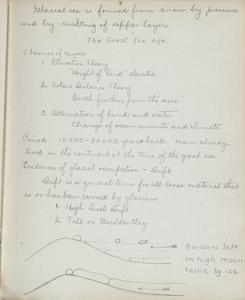 Glacial ice is formed from snow by pressure
and by melting of upper layers.
The Great Ice Age
Theories of cause
1. Elevation Theory
Height of land elevated.
2. Solar Distance Theory
Earth further from the sun
3. Alternation of land and water
Change of ocean currents and climate
Period. 10000-80000 years back. Man already
lived in the continent at the time of the great ice.
Evidences of glacial occupation - Drift
Drift is a general term for all loose material that
as or has been carried by glaciers
1. High Level Drift
2. Till or Boulder Clay
Boulders left
on high moun-
tains by ice.